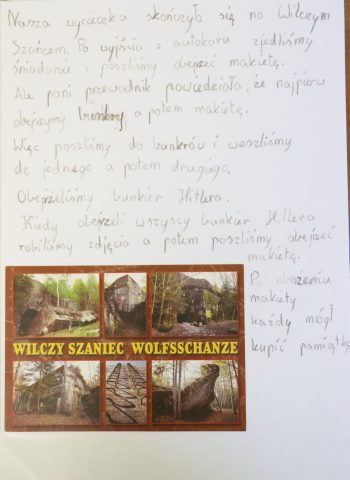 Nasza wycieczka skończyła się na Wilczym
Szańcem. Po wyjściu z autokaru zjedliśmy
śniadanie i poszliśmy obejżeć makietę.
Ale pani przewodnik powiedziała, że najpierw
obejżymy bunkry a potem makietę.
Więc poszliśmy do bunkrów i weszliśmy
do jednego a potem drugiego.
Obejżeliśmy bunkier Hitlera.
Kiedy obejżeli wszyscy bunkier Hitlera
robiliśmy zdjęcia a potem poszliśmy obejżeć
makietę.
Po obejżeniu
makiety
każdy mógł
kupić pamiątkę
WILCZY SZANIEC WOLFSSCHANZE